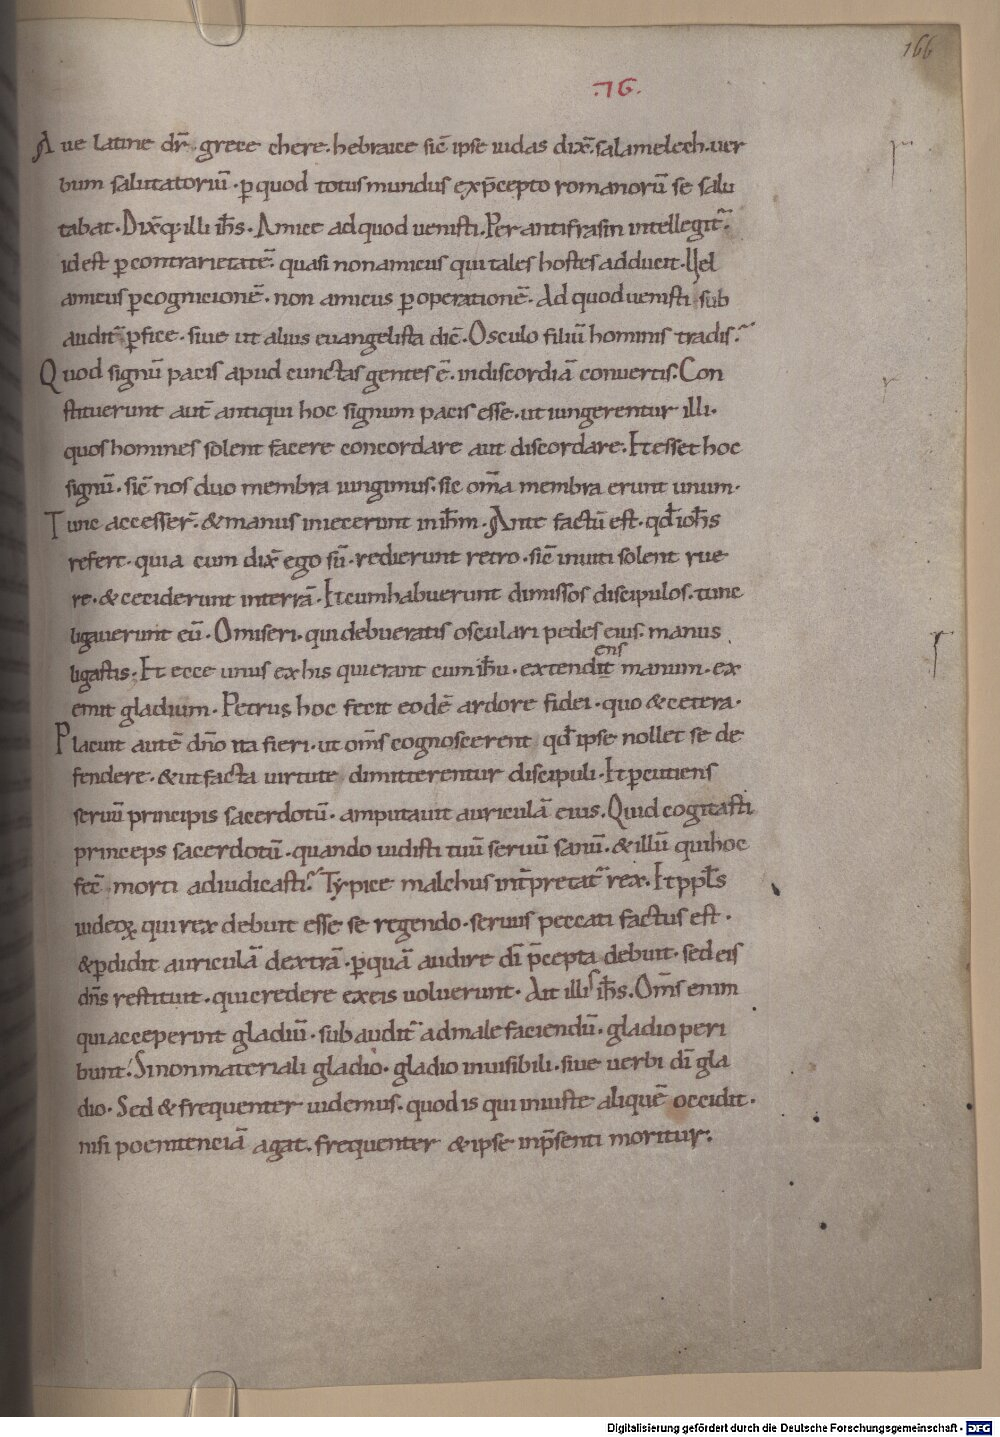 166
.76.
Aue latine dr̄. grece chere. hebraice sic̄ ipse iudas dix̄. salamelech. uer
bum salutatoriū. ꝑ quod totus mundus exp̄cepto romanorū se salu
tabat. Dix̄q; illi ih̄s. Amice adquod uenisti. Per antifrasin intellegit̄.
id est ꝑcontrarietatē. quasi nonamicus qui tales hostes adducit. Vel
amicus ꝑcognicionē. non amicus ꝑoperationē. Ad quod uenisti sub
audit̄ ꝑfice. siue ut alius euangelista dic̄. Osculo filiū hominis tradis.
Quod signū pacis apud cunctas gentes ē. indiscordiā conuertis. Con
stituerunt aut̄ antiqui hoc signum pacis esse. ut iungerentur illi.
quos homines solent facere concordare aut discordare. Et esset hoc
signū. sic̄ nos duo membra iungimus. sic om̄a membra erunt unum.
Tunc accesser̄. & manus iniecerunt inih̄m. Ante factū est. qd̄ ioh̄s
refert. quia cum dix̄ ego sū. redierunt retro. sic̄ inuiti solent rue
re. & ceciderunt interrā. Et cumhabuerunt dimissos discipulos. tunc
ligauerunt eū. O miseri. qui debueratis osculari pedes eius. manus
ens
ligastis. Et ecce unus ex his quierant cum ih̄u. extendit manum. ex
emit gladium. Petrus hoc fecit eodē ardore fidei. quo & cetera.
Placuit autē dn̄o ita fieri. ut om̄s cognoscerent qd̄ ipse nollet se de
fendere. & ut facta uirtute dimitterentur discipuli. Et ꝑcutiens
seruū principis sacerdotū. amputauit auriculā eius. Quid cogitasti
princeps sacerdotū. quando uidisti tuū seruū sanū. & illū qui hoc
fec̄ morti adiudicasti. Typice malchus int̄pretat̄ rex. Et ppl̄s
iudeoꝝ. qui rex debuit esse se regendo. seruus peccati factus est.
& ꝑdidit auriculā dextrā. ꝑ quā audire dī p̄cepta debuit. sed eis
dn̄s restituit. qui credere exeis uoluerunt. Ait illis ih̄s. Om̄s enim
qui acceperint gladiū. sub audit̄ admale faciendū. gladio peri
bunt. Si non materiali gladio. gladio inuisibili. siue uerbi dī gla
dio. Sed & frequenter uidemus. quod is qui iniuste aliquē occidit.
nisi poenitenciā agat. frequenter & ipse inp̄senti moritur.
Digitalisierung gefördert durch die Deutsche Forschungsgemeinschaft - DFG